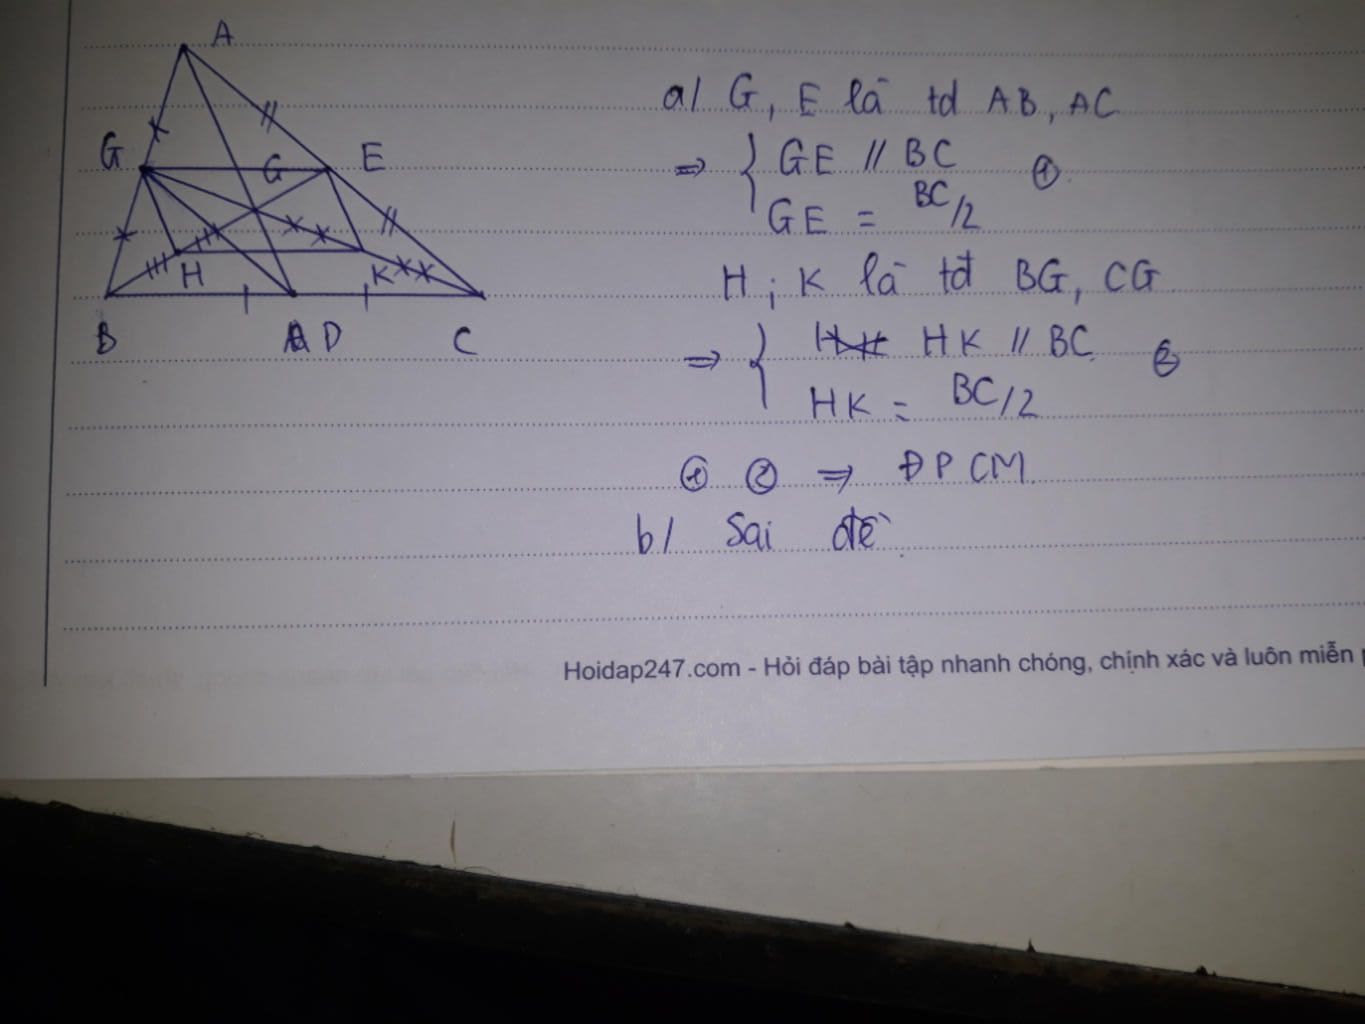 A
G
G
E
H
K
B
D
C
a/ G, E là td AB, AC
⇒ { GE // BC ①
GE = BC/2
H ; K là tđ BG, CG
⇒ { HK // BC ②
HK = BC/2
① ② ⇒ ĐPCM
b/ Sai đề.
Hoidap247.com - Hỏi đáp bài tập nhanh chóng, chính xác và luôn miễn